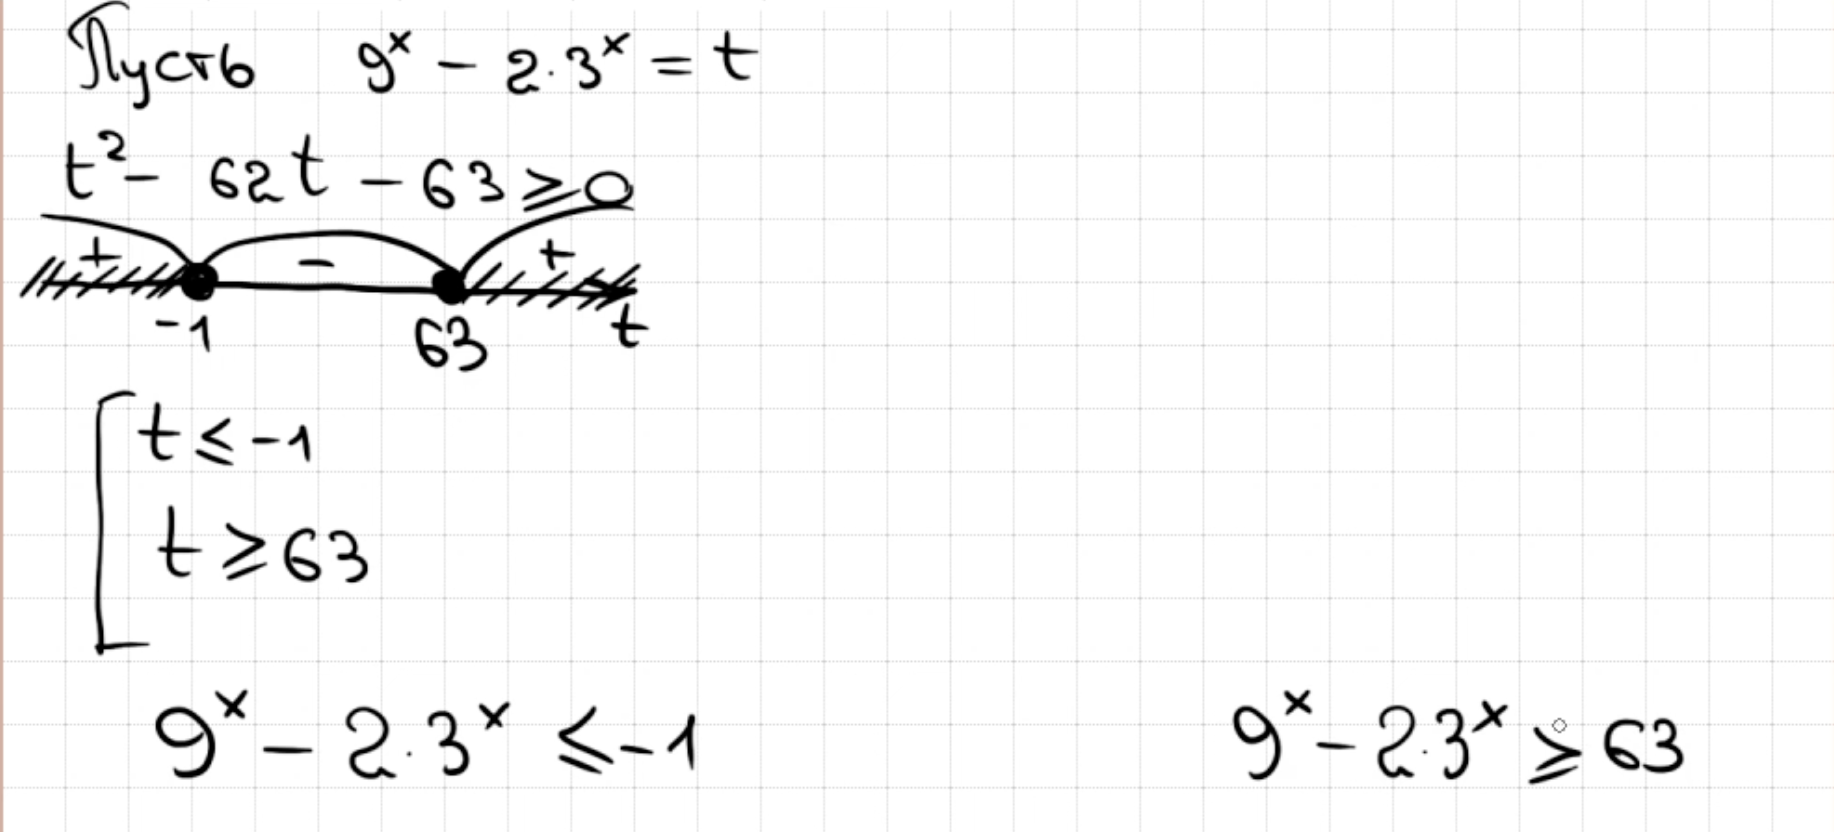 Пусть 9ˣ - 2·3ˣ = t
t² - 62t - 63 ⩾ 0
+ - +
-1 63 t
[ t ⩽ -1
t ⩾ 63
9ˣ - 2·3ˣ ⩽ -1 9ˣ - 2·3ˣ ⩾ 63